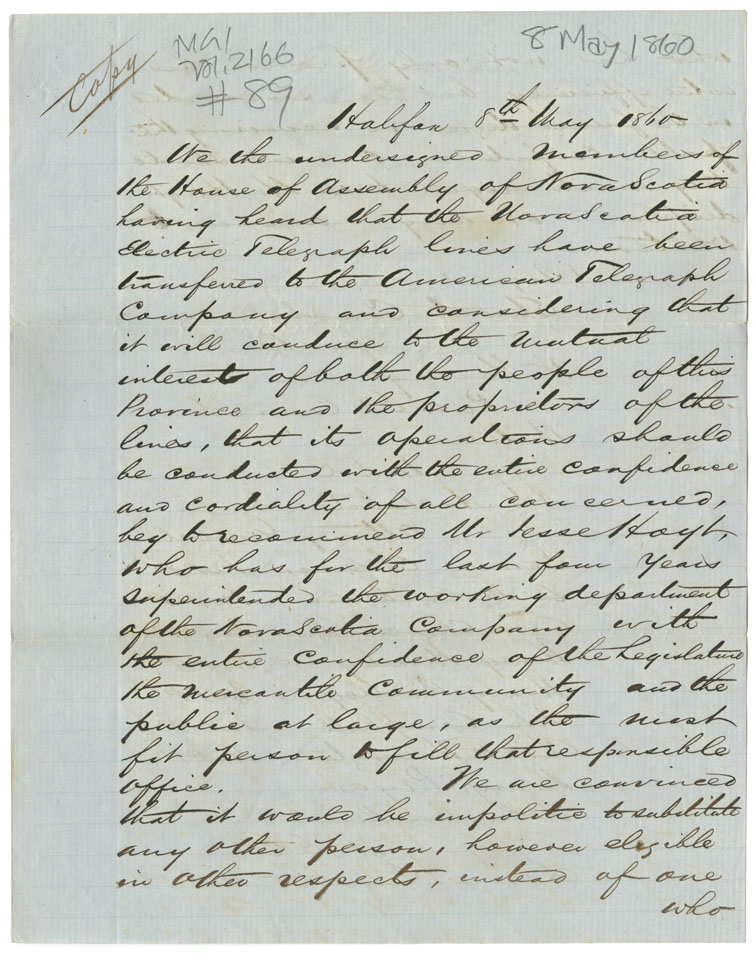 Copy
MG1
Vol. 2166
# 89
8 May 1860
Halifax 8th May 1860
We the undersigned Members of
the House of Assembly of Nova Scotia
having heard that the Nova Scotia
Electric Telegraph lines have been
transferred to the American Telegraph
Company and considering that
it will conduce to the mutual
interests of both the people of this
Province and the proprietors of the
lines, that its operations should
be conducted with the entire confidence
and cordiality of all concerned,
beg to recommend Mr Jesse Hoyt,
who has for the last four years
superintended the working department
of the Nova Scotia Company with
the entire confidence of the Legislature
the mercantile Community and the
public at large, as the most
fit person to fill that responsible
office. We are convinced
that it would be impolitic to substitute
any other person, however elegible
in other respects, instead of one
who